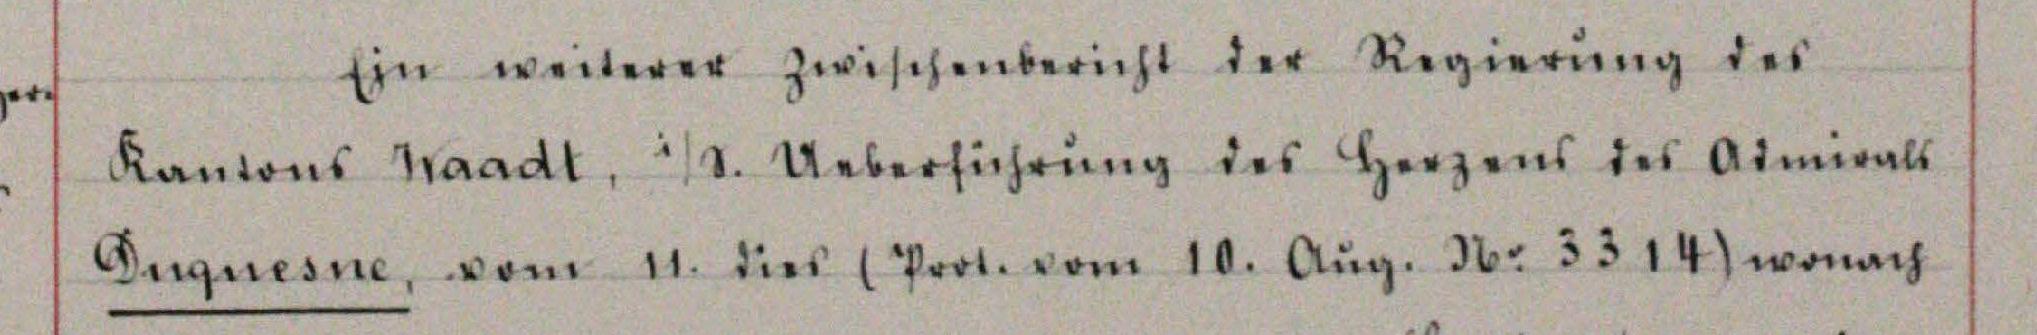 Ein weiterer Zwischenbericht der Regierung des
Kantons Waadt, i/S. Ueberführung des Herzens des Admirals
Duquesne, vom 11. dies (Prot. vom 10. Aug. No: 3314) wonach